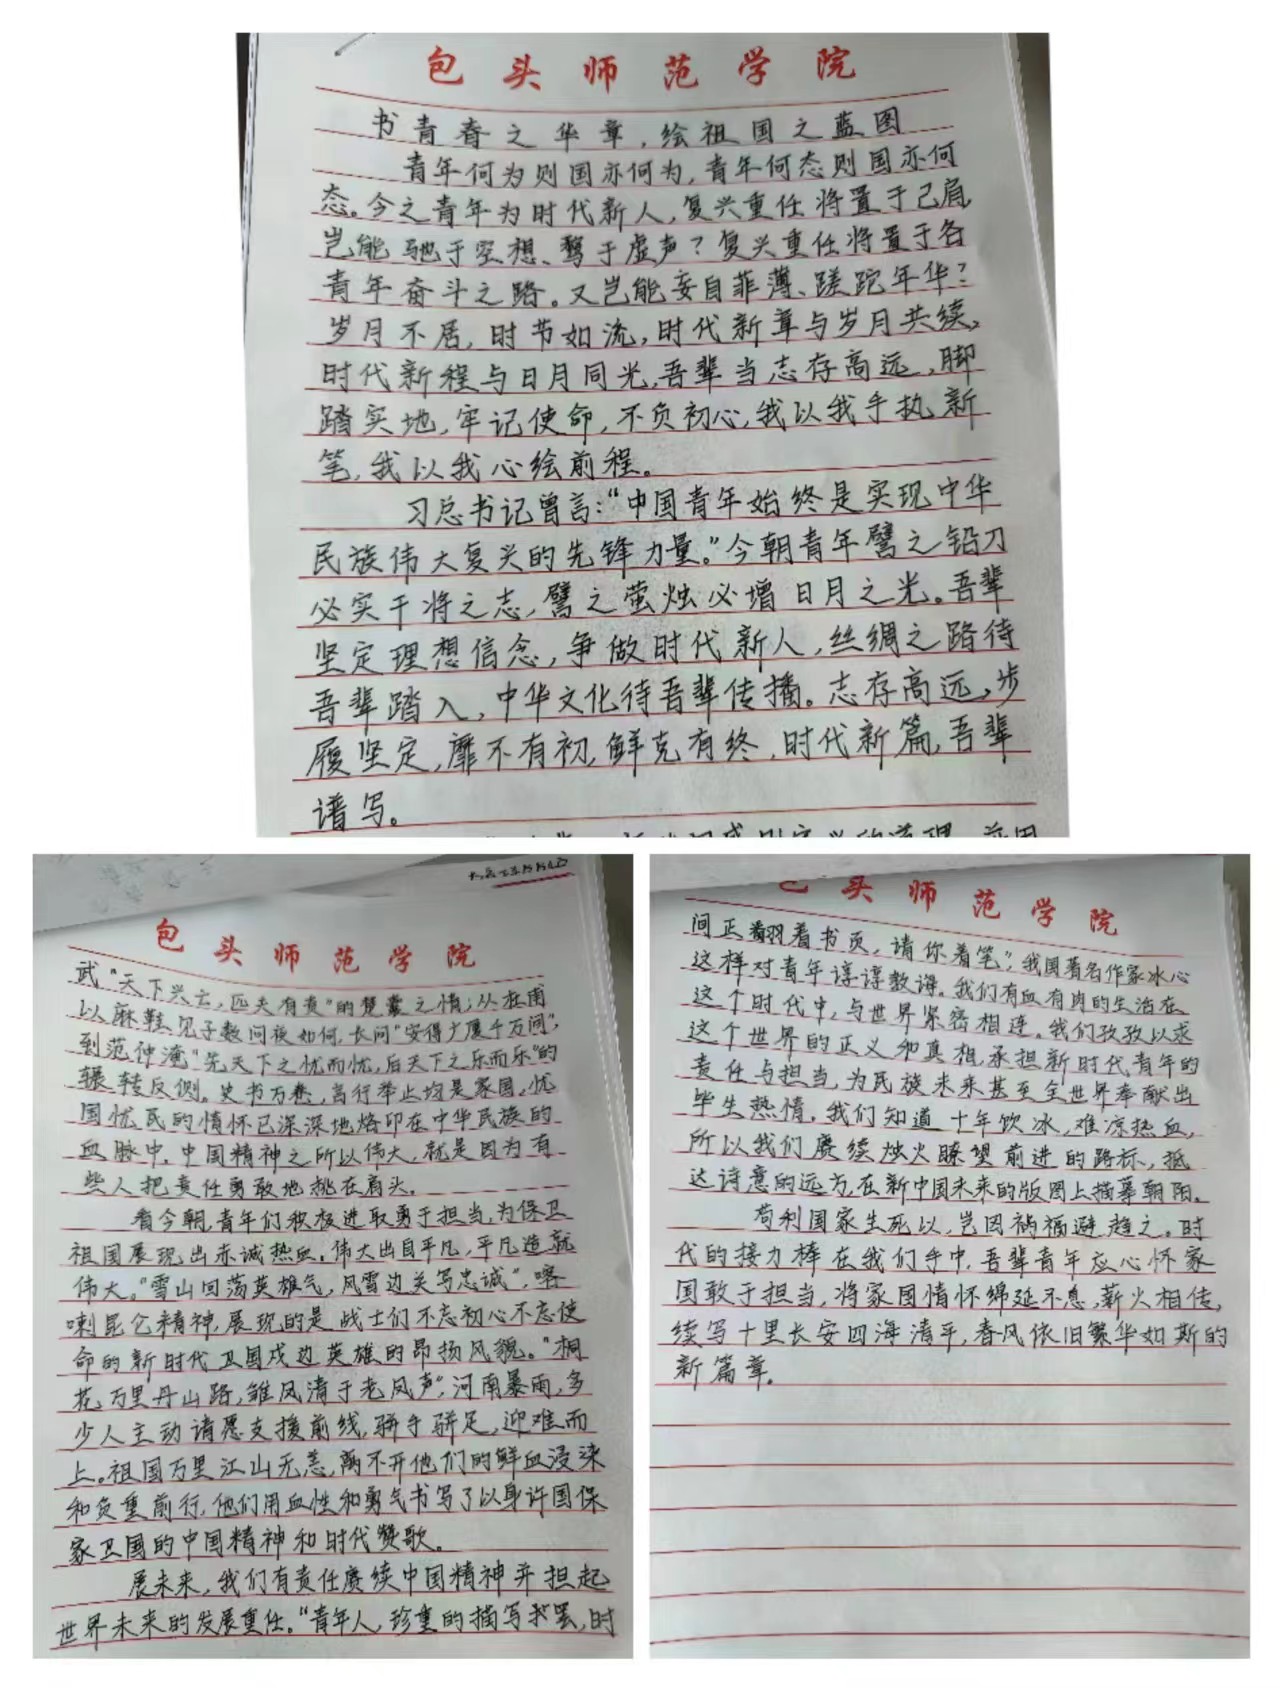 包头师范学院
书青春之华章，绘祖国之蓝图
青年何为则国亦何为，青年何态则国亦何
态。今之青年为时代新人，复兴重任将置于己肩，
岂能驰于空想、骛于虚声？复兴重任将置于各
青年奋斗之路。又岂能妄自菲薄、蹉跎年华？
岁月不居，时节如流，时代新章与岁月共续，
时代新程与日月同光，吾辈当志存高远，脚
踏实地，牢记使命，不负初心，我以我手执新
笔，我以我心绘前程。
习总书记曾言：“中国青年始终是实现中华
民族伟大复兴的先锋力量。”今朝青年譬之铅刀
必实干将之志，譬之萤烛必增日月之光。吾辈
坚定理想信念，争做时代新人，丝绸之路待
吾辈踏入，中华文化待吾辈传播。志存高远，步
履坚定，靡不有初，鲜克有终，时代新篇，吾辈
谱写。
包头师范学院
武“天下兴亡，匹夫有责”的楚囊之情；从杜甫
以麻鞋见子数问夜如何，长问“安得广厦千万间”，
到范仲淹“先天下之忧而忧，后天下之乐而乐”的
辗转反侧。史书万卷，高行举止均是家国，忧
国忧民的情怀已深深地烙印在中华民族的
血脉中。中国精神之所以伟大，就是因为有
些人把责任勇敢地挑在肩头。
看今朝，青年们积极进取勇于担当，为保卫
祖国展现出赤诚热血。伟大出自平凡，平凡造就
伟大。“雪山回荡英雄气，风雪边关写忠诚”，喀
喇昆仑精神，展现的是战士们不忘初心不忘使
命的新时代卫国戍边英雄的昂扬风貌。“桐
花万里丹山路，雏凤清于老凤声”，河南暴雨，多
少人主动请愿支援前线，骈手骈足，迎难而
上。祖国万里江山无恙，离不开他们的鲜血浸染
和负重前行，他们用血性和勇气书写了以身许国保
家卫国的中国精神和时代赞歌。
展未来，我们有责任赓续中国精神并担起
世界未来的发展重任。“青年人，珍重的描写罢，时
包头师范学院
间正翻着书页，请你着笔”，我国著名作家冰心
这样对青年谆谆教诲。我们有血有肉的生活在
这个时代中，与世界紧密相连。我们孜孜以求
这个世界的正义和真相，承担新时代青年的
责任与担当，为民族未来甚至全世界奉献出
毕生热情。我们知道十年饮冰，难凉热血，
所以我们赓续烛火瞭望前进的路标，抵
达诗意的远方，在新中国未来的版图上描摹朝阳。
苟利国家生死以，岂因祸福避趋之。时
代的接力棒在我们手中，吾辈青年应心怀家
国敢于担当，将家国情怀绵延不息，薪火相传，
续写十里长安四海清平，春风依旧繁华如斯的
新篇章。